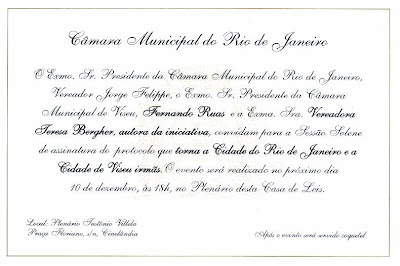 Câmara Municipal do Rio de Janeiro
O Exmo. Sr. Presidente da Câmara Municipal do Rio de Janeiro,
Vereador Jorge Felippe, o Exmo. Sr. Presidente da Câmara
Municipal de Viseu, Fernando Ruas e a Exma. Sra. Vereadora
Teresa Bergher, autora da iniciativa, convidam para a Sessão Solene
de assinatura do protocolo que torna a Cidade do Rio de Janeiro e a
Cidade de Viseu irmãs. O evento será realizado no próximo dia
10 de dezembro, às 18h, no Plenário desta Casa de Leis.
Local: Plenário Teotônio Villela
Praça Floriano, s/n, Cinelândia
Após o evento será servido coquetel